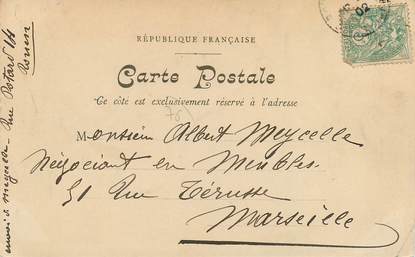 RÉPUBLIQUE FRANÇAISE
Carte Postale
Ce côté est exclusivement réservé à l'adresse
Monsieur Albert Meycelle
Négociant en Meubles
51 Rue Térusse
Marseille
envoi à meycelle - Rue
02